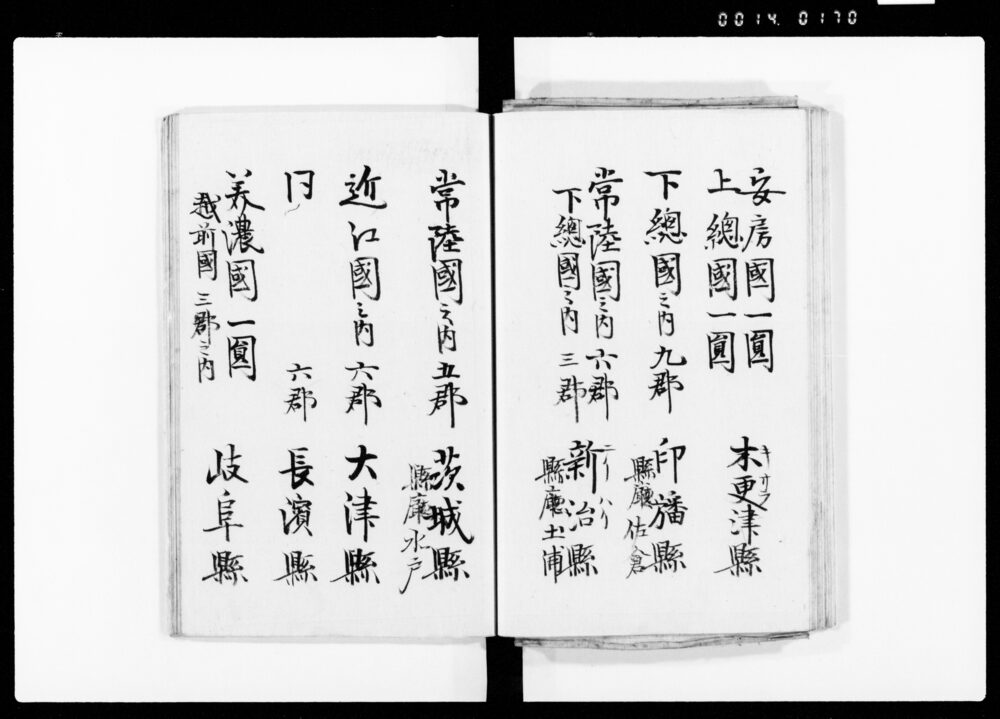 0014 0170
安房國一圓
上總國一圓
木更津縣
キサラ
下總國之内九郡
印旛縣
縣廳佐倉
常陸國之内六郡
下總國之内三郡
新治縣
ニイハリ
縣廳土浦
常陸國之内五郡
茨城縣
縣廳水戸
近江國之内六郡
大津縣
同
六郡
長濱縣
美濃國一圓
越前國三郡之内
岐阜縣